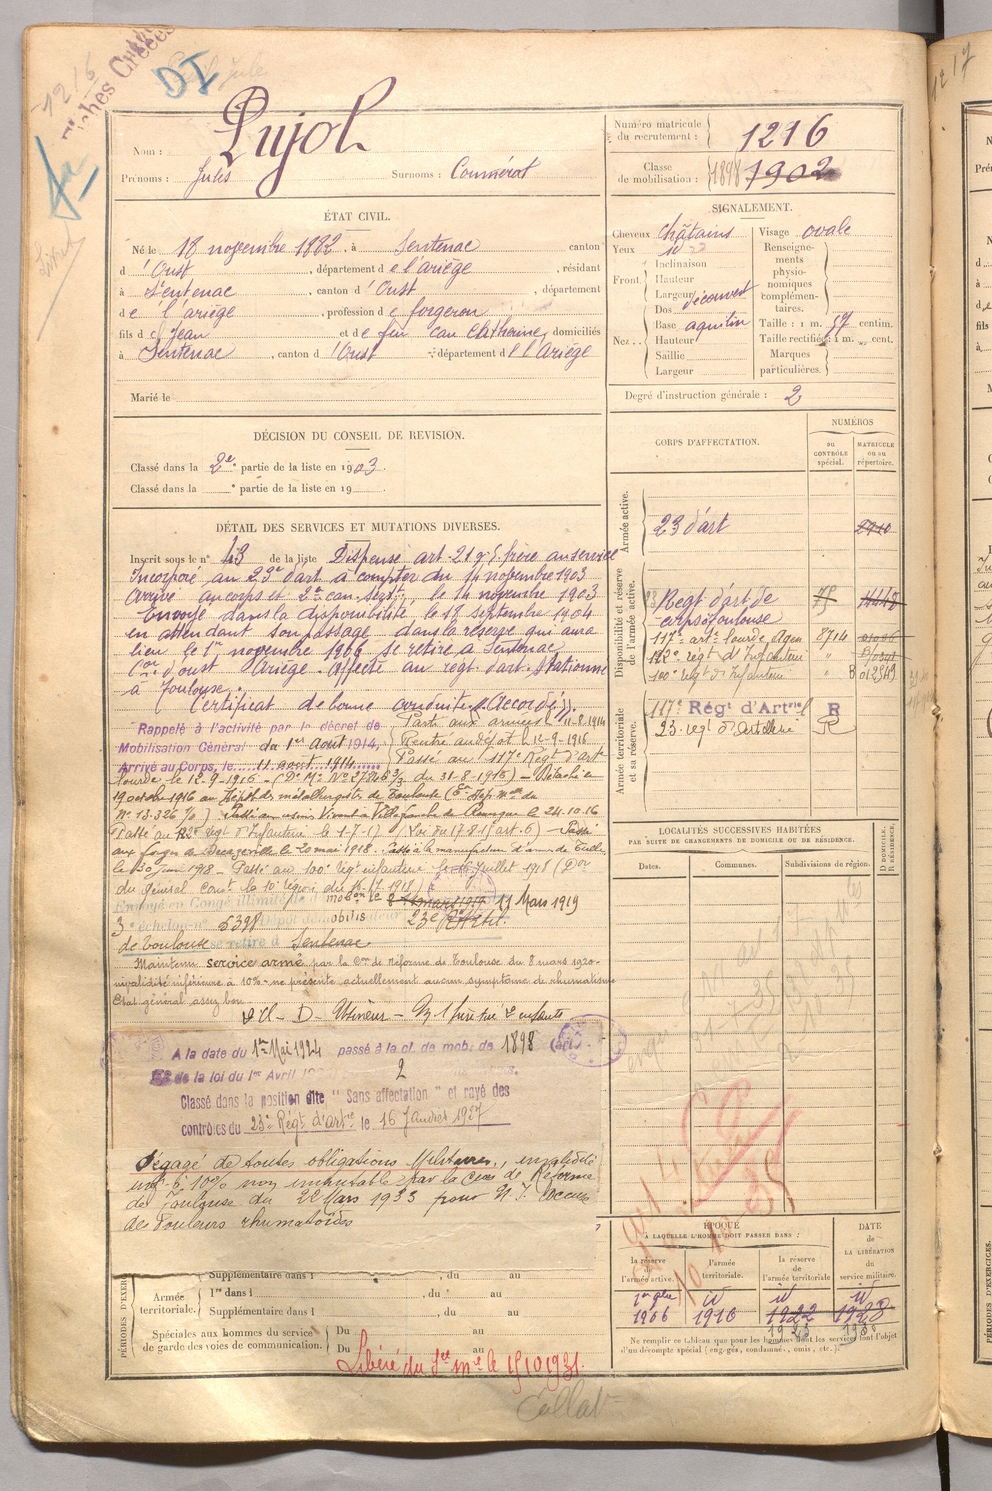 1216
Fiches Créées
DI
Nom : Pujol
Prénoms : Jules Surnoms : Coumérot
Numéro matricule du recrutement : 1216
Classe de mobilisation : 1898 1902
ÉTAT CIVIL.
Né le 18 novembre 1882, à Sentenac canton
d'Oust, département de l'ariège, résidant
à Sentenac, canton d'Oust, département
de l'ariège, profession de forgeron
fils de Jean et de feu Catherine, domiciliés
à Sentenac, canton d'Oust, département de l'Ariège
Marié le
SIGNALEMENT.
Cheveux châtains
Yeux
Front. Inclinaison
Hauteur
Largeur découvert
Nez. Dos
Base aquilin
Hauteur
Saillie
Largeur
Visage ovale
Renseignements physionomiques complémentaires.
Taille : 1 m. 57 centim.
Taille rectifiée : 1 m. cent.
Marques particulières.
Degré d'instruction générale : 2
DÉCISION DU CONSEIL DE REVISION.
Classé dans la 2e partie de la liste en 1903.
Classé dans la e partie de la liste en 19
DÉTAIL DES SERVICES ET MUTATIONS DIVERSES.
Inscrit sous le n° 43 de la liste Dispensé art. 21 frère au service
Incorporé au 23e d'art à compter du 14 novembre 1903
Arrivé au corps et 2e can. serv., le 14 novembre 1903
Envoyé dans la disponibilité le 18 septembre 1904
en attendant son passage dans la réserve qui aura
lieu le 1er novembre 1906 se retire à Sentenac
Con d'oust Ariège. Affecté au régt d'art. stationné
à Toulouse.
Certificat de bonne conduite "Accordé".
Rappelé à l'activité par le décret de
Mobilisation Général du 1er Août 1914,
Arrivé au Corps, le 11 août 1914
Parti aux armées le 11-8-1914
Rentré au dépôt le 12-9-1916
Passé au 117e Régt d'art
lourde le 12-9-1916 - (Dn Mle N° 27346 3/3 du 31-8-1916) - Détaché le
19 octobre 1916 au Dépôt des métallurgistes de Toulouse
N° 13.326 Passé aux usines Vivant à Villefranche de Rouergue le 24.10.16
Passé au 122e Régt d'Infanterie le 1-7-17 (Loi du 17.8.15 art. 6) - Passé
aux forges de Decazeville le 20 mai 1918. Passé à la manufacture d'armes de Tulle
le 30 juin 1918 - Passé au 100e régt infanterie le 16 juillet 1918 (Don
du général Comt la 10e légion du 16-7-1918)
Envoyé en Congé illimité de démobon le 11 Mars 1919
3e échelon n° 5398 Dépôt démobilisateur 23e
de Toulouse se retire à Sentenac
Maintenu service armé par la Con de Réforme de Toulouse du 8 mars 1920.
invalidité inférieure à 10% - ne présente actuellement aucun symptôme de rhumatisme
Etat général assez bon.
A la date du 1er Mai 1924 passé à la cl. de mob. de 1898
de la loi du 1er Avril 2
Classé dans la position dite " Sans affectation " et rayé des
contrôles du 23e Régt d'artie le 16 Janvier 1927
Dégagé de toutes obligations Militaires, invalidité
inf. à 10% non imputable par la Cion de Réforme
de Toulouse du 2 Mars 1933 pour
des Douleurs rhumatoïdes
CORPS D'AFFECTATION.
NUMÉROS
au CONTRÔLE spécial.
MATRICULE ou au répertoire.
Armée active.
23 d'art 2910
Disponibilité et réserve de l'armée active.
23 Régt d'art de
corps à Toulouse
117e artie lourde Agen 8714
122e régt d'Infanterie "
100e régt d'Infanterie "
Armée territoriale et sa réserve.
117e Régt d'Artrie R
23e régt d'Artillerie
LOCALITÉS SUCCESSIVES HABITÉES
PAR SUITE DE CHANGEMENTS DE DOMICILE OU DE RÉSIDENCE.
Dates. Communes. Subdivisions de région.
D. DOMICILE. R. RÉSIDENCE.
ÉPOQUE
À LAQUELLE L'HOMME DOIT PASSER DANS :
la réserve de l'armée active.
l'armée territoriale.
la réserve de l'armée territoriale
DATE de LA LIBÉRATION du service militaire.
1906 1916 1922 1928
Ne remplir ce tableau que pour les hommes dont les services font l'objet
d'un décompte spécial (engagés, condamnés, omis, etc.).
PÉRIODES D'EXERCICES.
Supplémentaire dans l , du au
Armée territoriale. 1re dans l , du au
Supplémentaire dans l , du au
Spéciales aux hommes du service de garde des voies de communication. Du au
Du au
Libéré du Sce Mre le 15 10 1931.